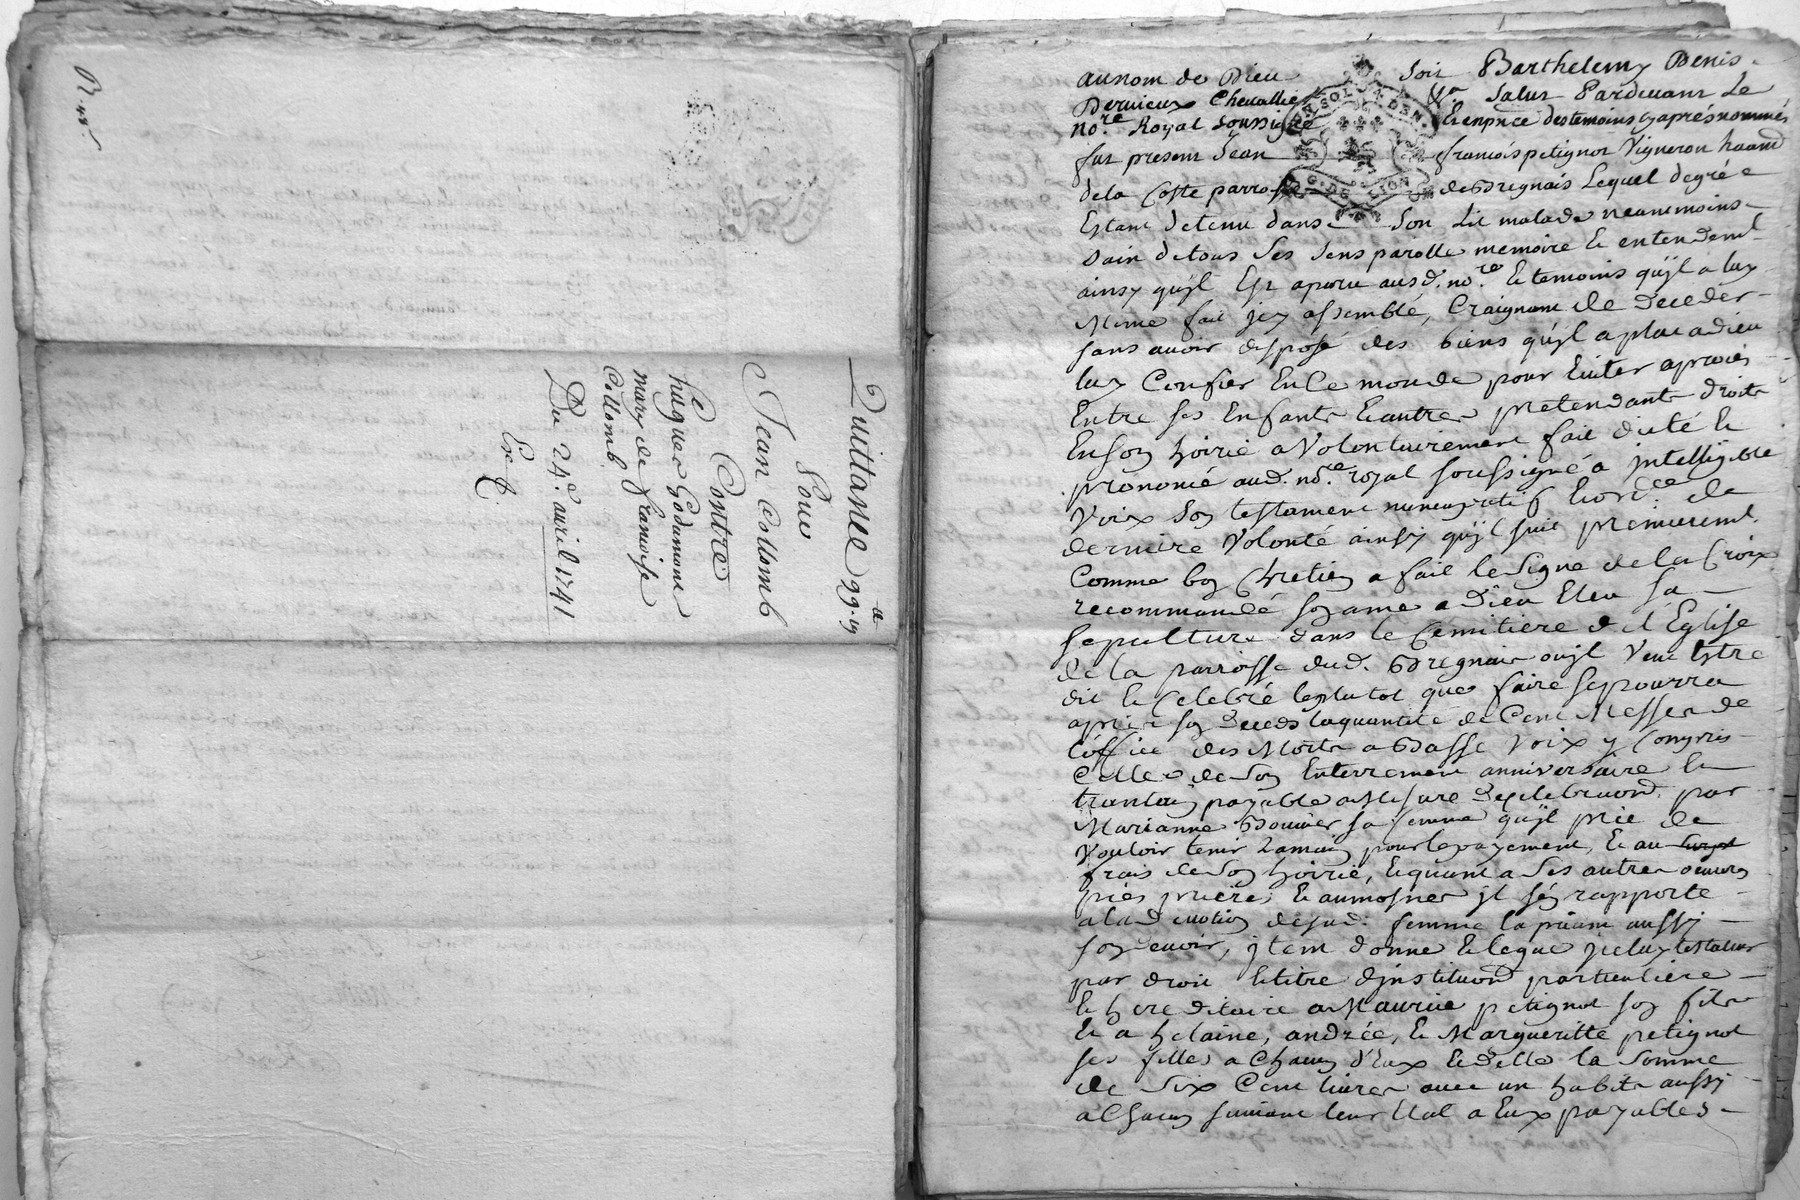 Rxx
Quittance 99.lt 19
Pour
Jean Collomb
Contre
hugues Godemone
mary de francoise
Collomb
Du 24e. avril 1741
Exé
au nom de Dieu soit Barthelemy Denis
Dervieux Chevallier Salut Pardevant Le
nore. Royal soussigné Et en pnce des temoins cy après nommés
fut present Jean francois petignot Vigneron haant
de la Coste parroisse de Bregnais Lequel de gré
Estant detenu dans son Lit malade neanmoins
sain de tous ses sens parolle memoire et entendemt
ainsy quyl Est aparu ausd. nore. Et temoins quyl a luy
Meme fait icy assemblé, Craignant de deceder
sans avoir disposé des biens quyl a plut a dieu
luy Confier En Ce monde pour Eviter aprocés
Entre ses Enfants Et autres pretendants droits
En son hoirie a Volontairement fait dicté Et
prononcé aud. nore. royal soussigné a jntelligible
Voix son testament nuncupatif Et ordce. de
derniere Volonté ainsy quyl suit premierement
Comme bon Chretien a fait le signe de la Croix
recommandé son ame a Dieu Eleu sa
sepulture dans le Cemitiere de l'Eglise
de la parroisse dud. Bregnais ou yl Veut Estre
dit et Celebré le plutot que faire se pourra
après son Deceds la quantité de Cent Messes de
l'office des Morts a Basse Voix y Compris
Celles de son Enterrement anniversaire Et
trantain payable a Mesure De celebraon. par
Marianne Bouvier sa femme quyl prie de
Vouloir tenir Lamain pour le payement, Et au
frais de son hoirie, Et quant a ses autres oeuvres
pies prieres Et aumosnes jl s'en rapporte
a la Devotion de sad. femme la priant aussy
son devoir, jtem donne Et legue jceluy testateur
par droit Et titre d'jnstitution particuliere
Et hereditaire a Maurice petignot son fils
Et a helaine, andrée, Et Margueritte petignot
ses filles a Chacun d'Eux Et d'elles la somme
de six Cent livres avec un habits aussy
a Chacun suivant leur Etat a Eux payables